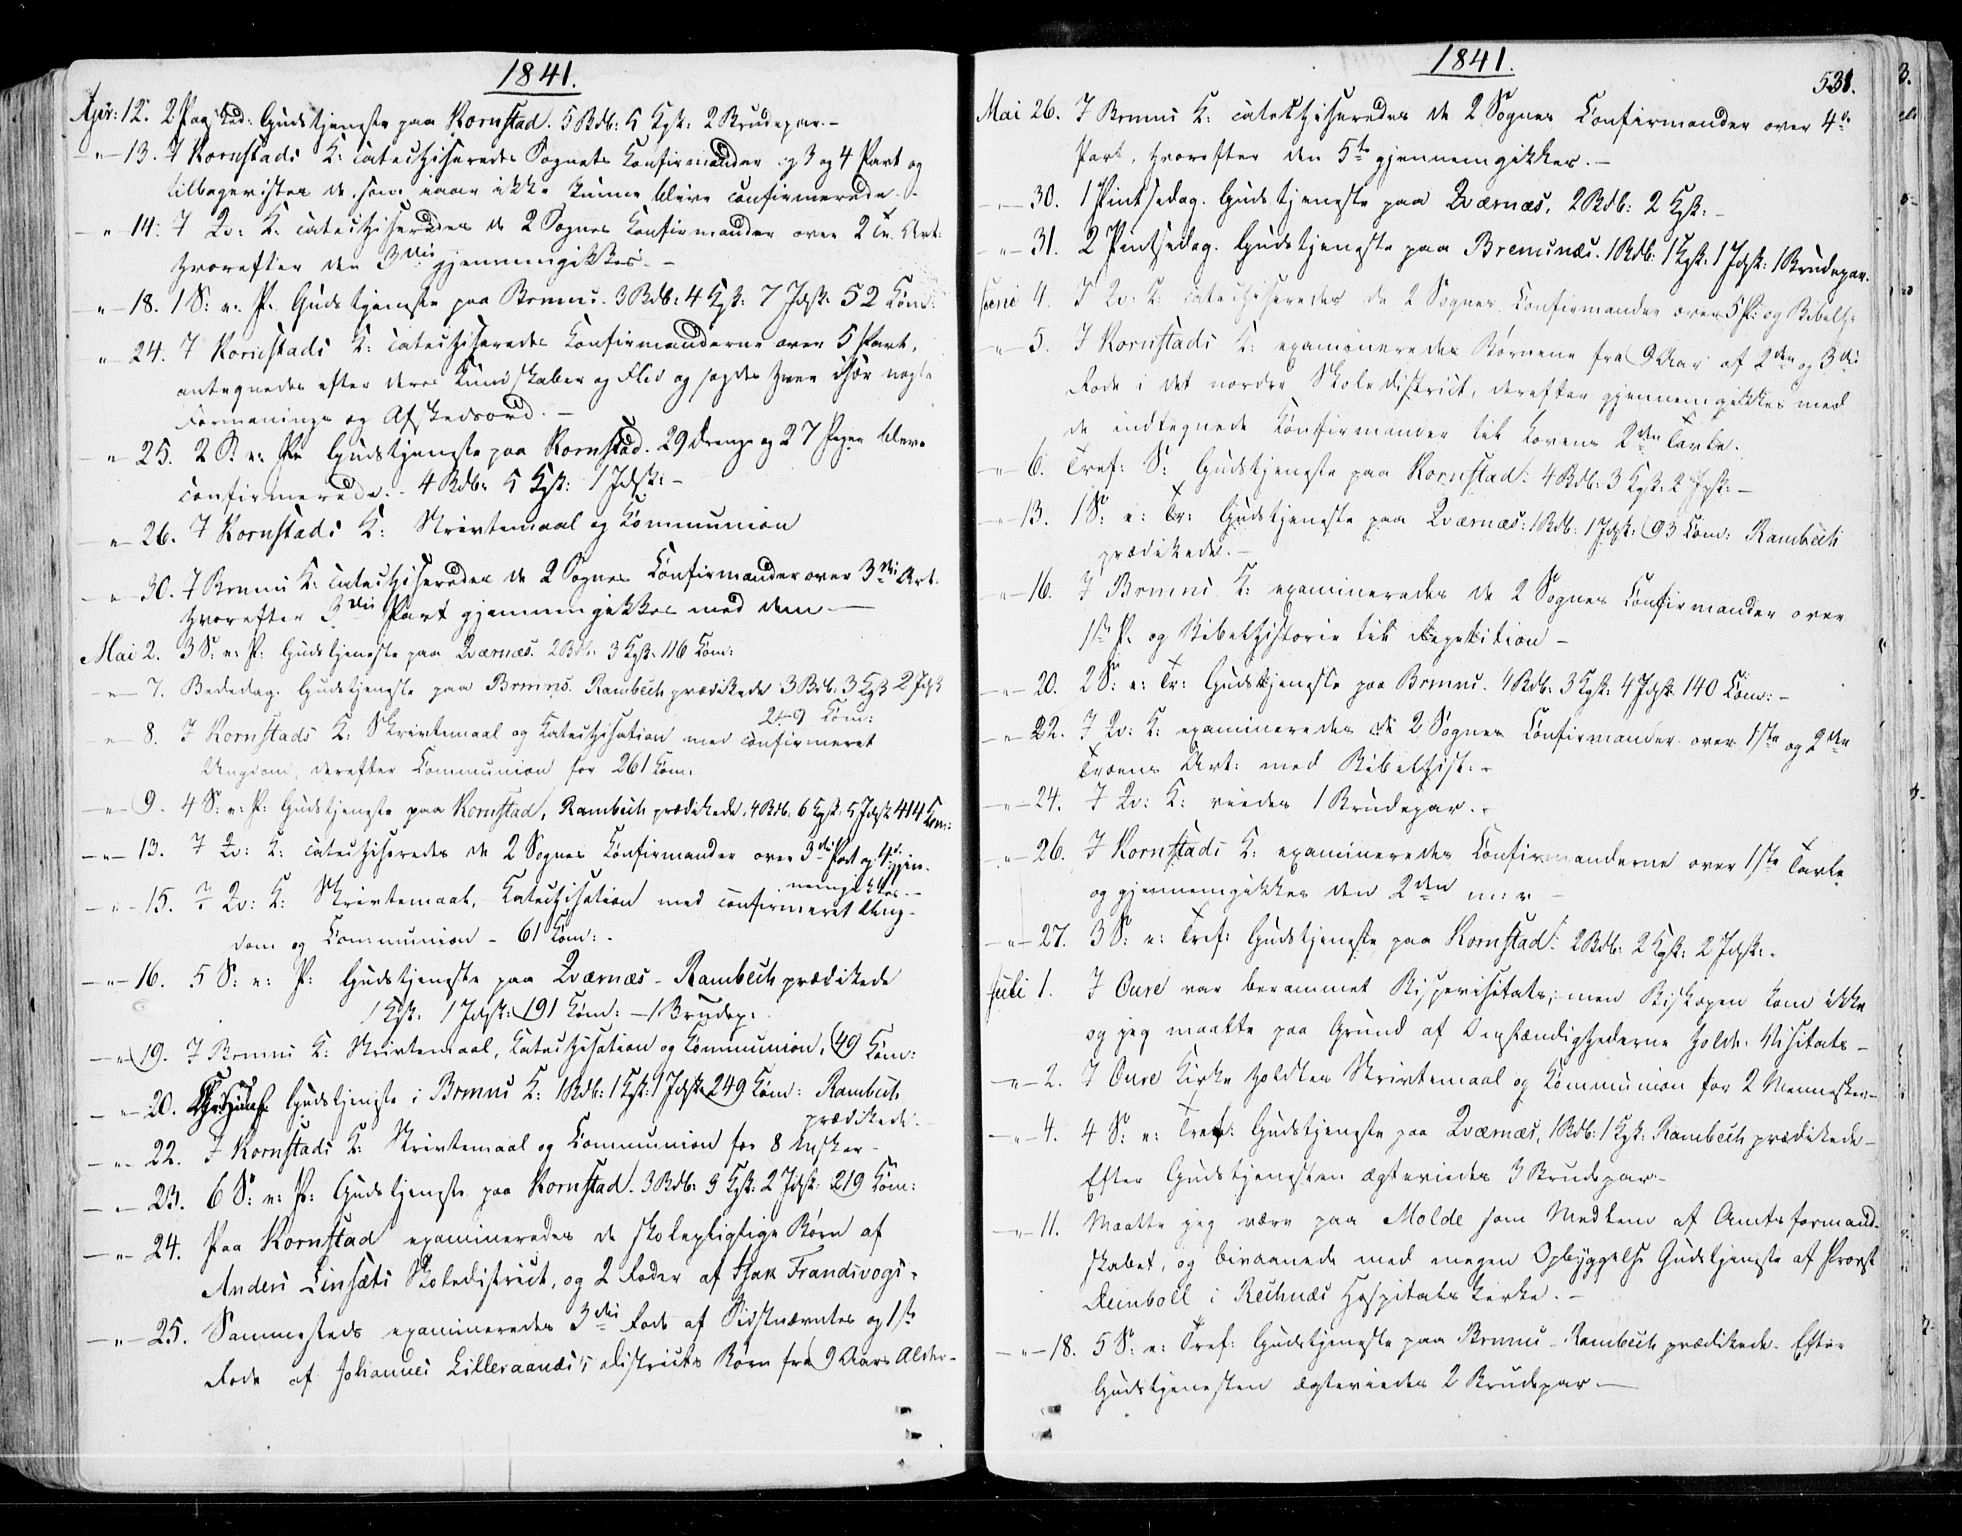 1841.
Apr: 12. 2 Paasked: Gudstjeneste paa Kornstad. 5 Bdb: 5 Kgk: 2 Brudepar.-
-"- 13. I Kornstads K: catechiseredes Sognets Confirmander og 3 og 4 Part og
tilbagevistes de som iaar ikke kunne blive confirmerede.-
-"- 14. I Qv: K: catechiseredes de 2 Sognes Confirmander over 2 Tr. Art:
hvorefter den 3die gjennemgikkes.-
-"- 18. 1 S: e: P. Gudstjeneste paa Bremns. 3 Bdb: 4 Kgk: 7 Jdsk: 52 Com:
-"- 24. I Kornstads K: catechiseredes Confirmanderne over 5 Part,
antegnedes efter deres Kundskaber og Flid og sagdes hver især nogle
Formanings og Afskedsord.-
-"- 25. 2 S. e: P. Gudstjeneste paa Kornstad. 29 Drenge og 27 Piger bleve
confirmerede.- 4 Bdb: 5 Kgk: 1 Jdsk:-
-"- 26. I Kornstads K: Skriftemaal og Communion
-"- 30. I Bremns K: catechiseredes de 2 Sognes Confirmander over 3die Art.
hvorefter 3die Part gjennemgikkes med dem-
Mai 2. 3 S: e: P: Gudstjeneste paa Qværnæs. 2 Bdb: 3 Kgk: 116 Com:
-"- 7. Bededag. Gudstjeneste paa Bremns. Rambech prædikede 3 Bdb: 3 Kgk 2 Jdsk
249 Com:
-"- 8. I Kornstads K: Skriftemaal og Catechisation med confirmeret
Ungdom, derefter Communion for 261 Com:
-"- 9. 4 S: e: P: Gudstjeneste paa Kornstad, Rambech prædikede. 4 Bdb: 6 Kgk: 5 Jdsk 414 Com:
-"- 13. I Qv: K: catechiseredes de 2 Sognes Confirmander over 3die Part og 4de gjen-
nemgikkes.-
-"- 15. I Qv: K: Skriftemaal, Catechisation med confirmeret Ung-
dom og Communion - 61 Com:.
-"- 16. 5 S: e: P: Gudstjeneste paa Qværnæs - Rambech prædikede
1 Kgk: 1 Jdsk: 191 Com: - 1 Brudep:
-"- 19. I Bremns K: Skriftemaal, Catechisation og Communion, 49 Com:
-"- 20. Gudstjeneste i Bremns K: 1 Bdb: 1 Kgk: 1 Jdsk: 249 Com: Rambech
prædikede.
-"- 22. I Kornstads K: Skriftemaal og Communion for 8 Msker-
-"- 23. 6 S: e: P: Gudstjeneste paa Kornstad. 3 Bdb: 3 Kgk: 2 Jdsk: 219 Com:
-"- 24. Paa Kornstad examineredes de skolepligtige Børn af
Anders Linsæts Skoledistrict, og 2 Roder af Isak Frandsvogs-
-"- 25. Sammesteds examineredes 3die Rode af Sidstnævntes og 1ste
Rode af Johannes Lilleraandes, districts Børn fra 9 Aars Alder-
1841.
531.
Mai 26. I Bremns K: catechiseredes de 2 Sognes Confirmander over 4de
Part, hvorefter den 5te gjennemgikkes.-
-"- 30. 1 Pintsedag. Gudstjeneste paa Qværnæs. 2 Bdb: 2 Kgk:-
-"- 31. 2 Pintsedag. Gudstjeneste paa Bremsnæs. 1 Bdb: 1 Kgk: 1 Jdsk: 1 Brudepar.
Juni 4. I Qv: K: catechiseredes de 2 Sognes Confirmander over 5 P: og Bibelh:
-"- 5. I Kornstads K: examineredes Børnene fra 9 Aar af 2den og 3die
Rode i det nordre Skoledistrict, derefter gjennemgikkes med
de indtegnede Confirmander til Lovens 2den Tavle.
-"- 6. Tref: S: Gudstjeneste paa Kornstad: 4 Bdb: 3 Kgk: 2 Jdsk:-
-"- 13. 1 S: e: Tr: Gudstjeneste paa Qværnæs: 1 Bdb: 1 Jdsk: 93 Com: Rambech
prædikede.-
-"- 16. I Bremns K: examineredes de 2 Sognes Confirmander over
1ste P. og Bibelhistorie til Repetition-
-"- 20. 2 S: e: Tr: Gudstjeneste paa Bremns. 4 Bdb: 3 Kgk: 4 Jdsk 140 Com:-
-"- 22. I Qv: K: examineredes de 2 Sognes Confirmander over 1ste og 2den
Troens Art: med Bibelhist:-
-"- 24. I Qv: K: viedes 1 Brudepar.-
-"- 26. I Kornstads K: examineredes Confirmanderne over 1ste Tavle
og gjennemgikkes den 2den m: v-
-"- 27. 3 S: e: Tref: Gudstjeneste paa Kornstad: 2 Bdb: 2 Kgk: 2 Jdsk:-
Juli 1. I Oure var berammet Bispevisitats, men Biskopen kom ikke
og jeg maatte paa Grund af Omstændighederne holde Visitats-
-"- 2. I Oure Kirke holdtes Skriftemaal og Communion for 2 Mennesker-
-"- 4. 4 S: e: Tref: Gudstjeneste paa Qværnæs, 1 Bdb: 1 Kgk: Rambech prædikede-
Efter Gudstjenesten ægteviedes 3 Brudepar-
-"- 11. Maatte jeg være paa Molde som Medlem af Amtsformand-
skabet, og bivaanede med megen Opbyggelse Gudstjeneste af Provst
Deinboll i Reitnæs Hospitals Kirke.-
-"- 18. 5 S: e: Tref: Gudstjeneste paa Bremns - Rambech prædikede - Efter
Gudstjenesten ægteviedes 2 Brudepar-